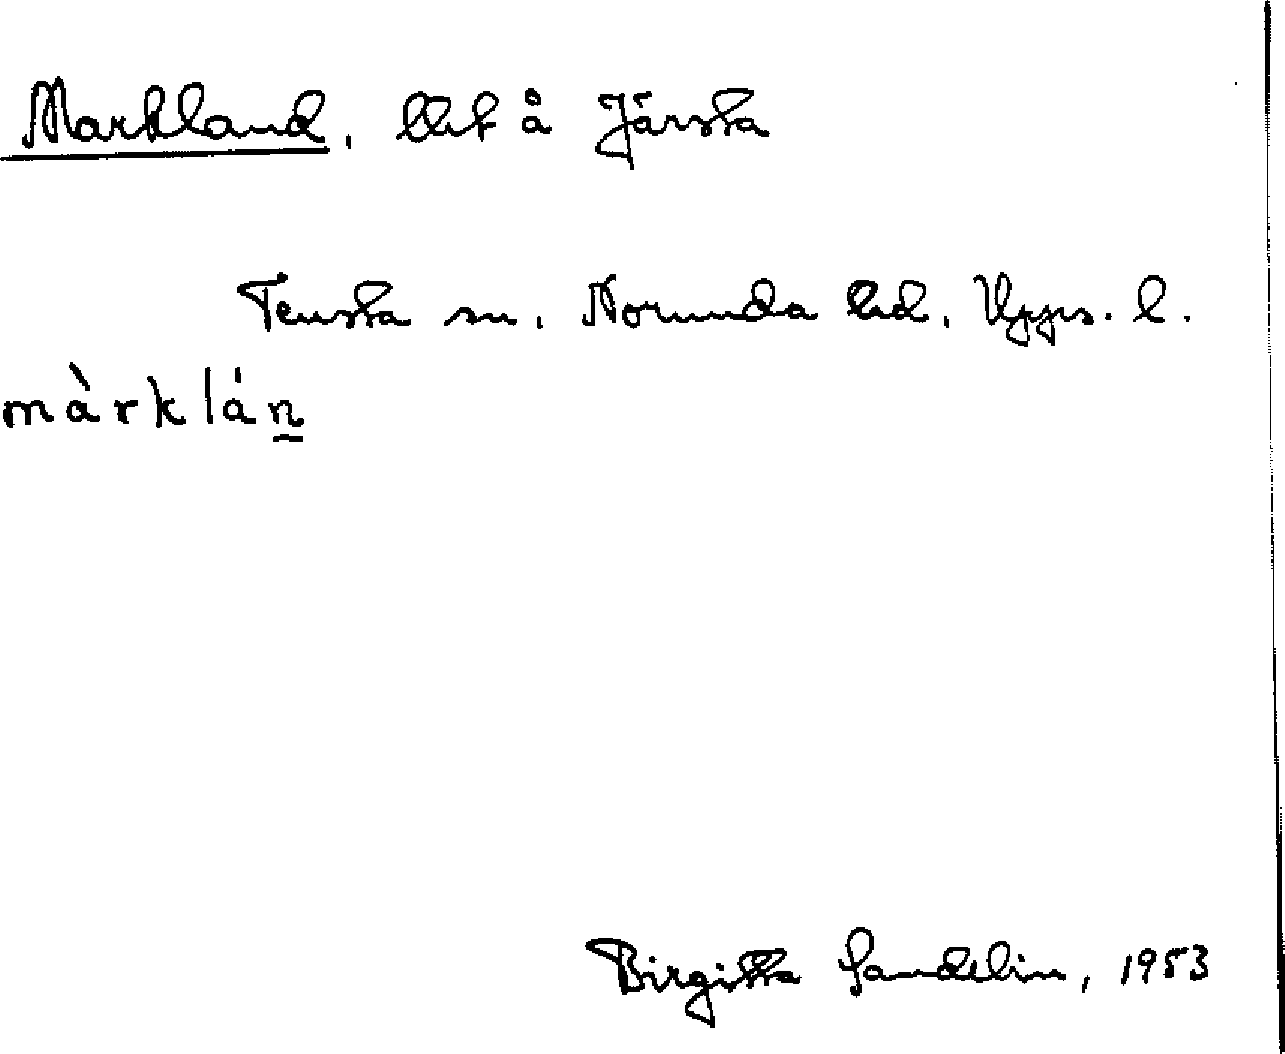 Markland, lht å Järsta
Tensta sn, Norunda hd, Upps. l.
màrklán̲
Birgitta Sandelin, 1953